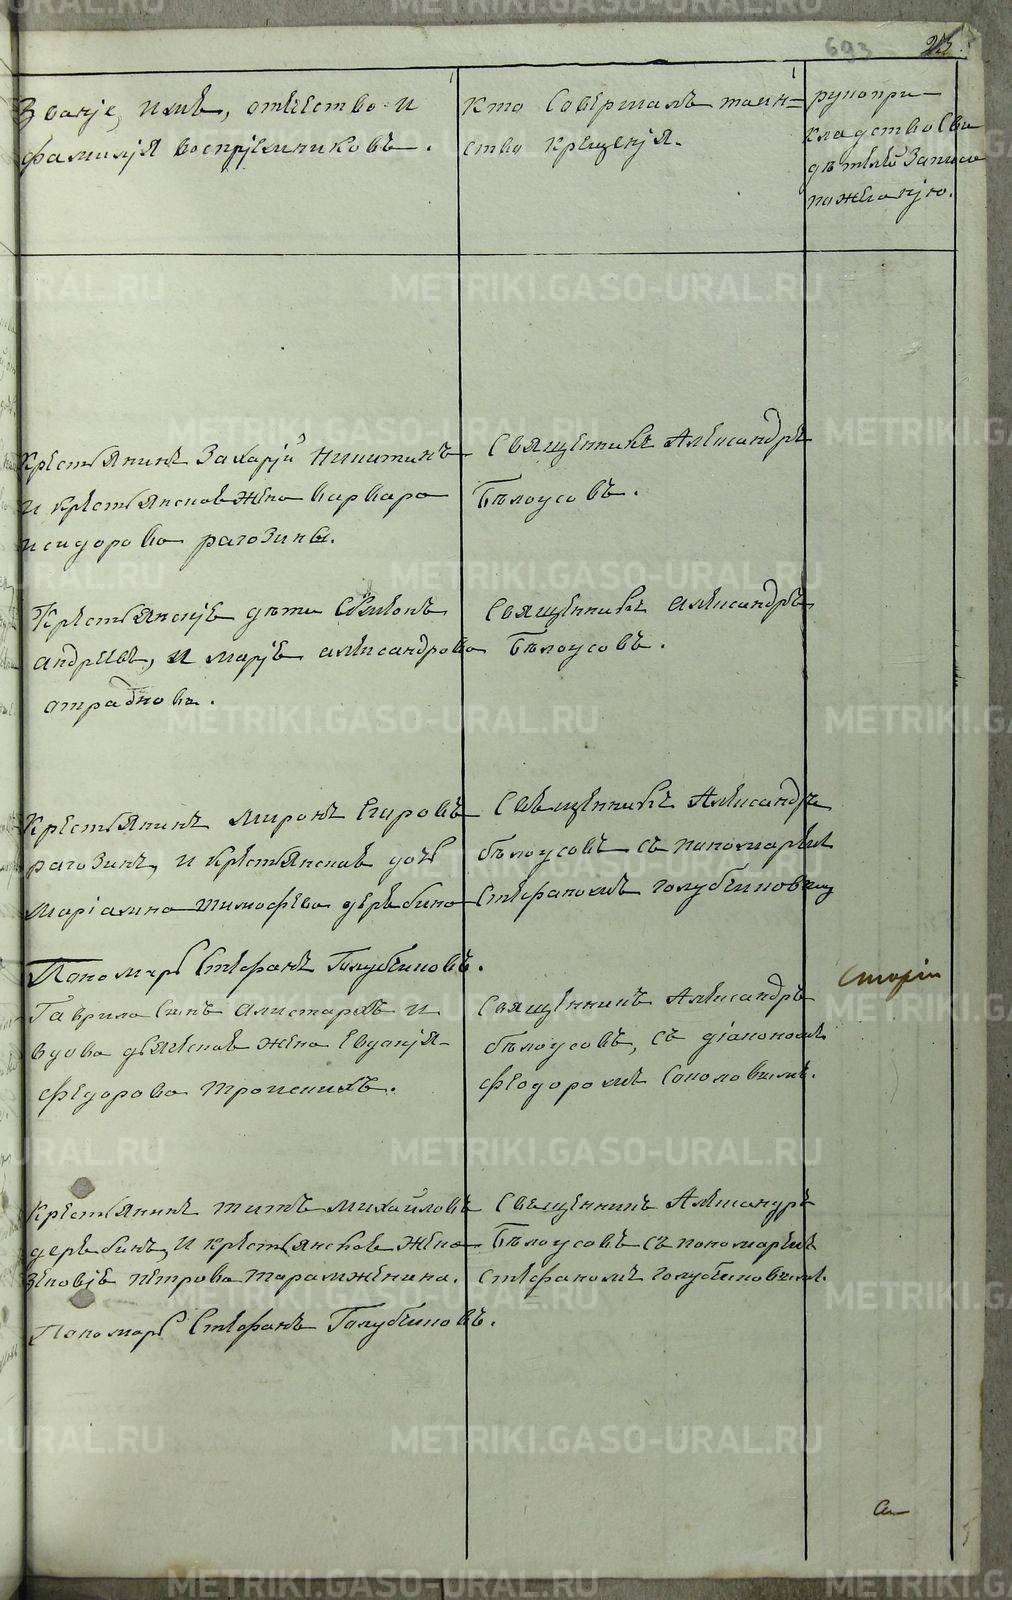 693
Званіе, имѣ, отчество и
фамилія воспріемниковъ.
Кто совершалъ таин=
ство крещенія.
рукопри-
кладство сви
дѣтелей записи
по желанію.
Крестьянинъ Захарій Никитинъ
и крестьянская жена варвара
исидорова рагозины.
Священникъ Александръ
Бѣлоусовъ.
Крестьянскіе дѣти Семіонъ
андреевъ, и марія александрова
отраднова.
Священникъ александръ
Бѣлоусовъ.
Крестьянинъ миронъ Егоровъ
рагозинъ, и крестьянская дочь
маріамна тимофеева дерябина
Пономарь Стефанъ Голубчиковъ.
Священникъ Александръ
бѣлоусовъ съ пономаремъ
Стефаномъ голубчиковымъ
Гаврила Сынъ Алистархъ и
вдова дьяческая жена Евдокія
федорова Троицкихъ.
Священникъ Александръ
бѣлоусовъ, съ діакономъ
феодоромъ Соколовымъ.
Крестьянинъ титъ михайловъ
дерябинъ, и крестьянская жена
зеновія петрова тарамженина.
Пономарь Стефанъ Голубчиковъ.
Священникъ Александръ
Бѣлоусовъ съ пономаремъ
стефаномъ голубчиковымъ.
METRIKI.GASO-URAL.RU